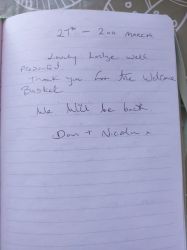 27th - 2nd March
Lovely Lodge well
prepared.
Thank you for the Welcome
Basket
We Will be back
Don + Nicola x